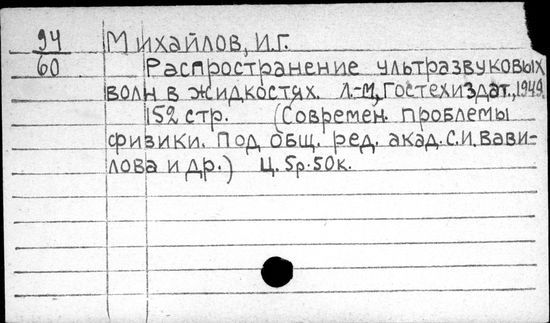 94 Михайлов, И.Г.
60 Распространение ультразвуковых
волн в жидкостях. Л.-М, Гостехиздат., 1949.
152 стр. (Современ. проблемы
физики. Под общ. ред. акад. С.И. Вави-
лова и др.) Ц. 5р. 50к.